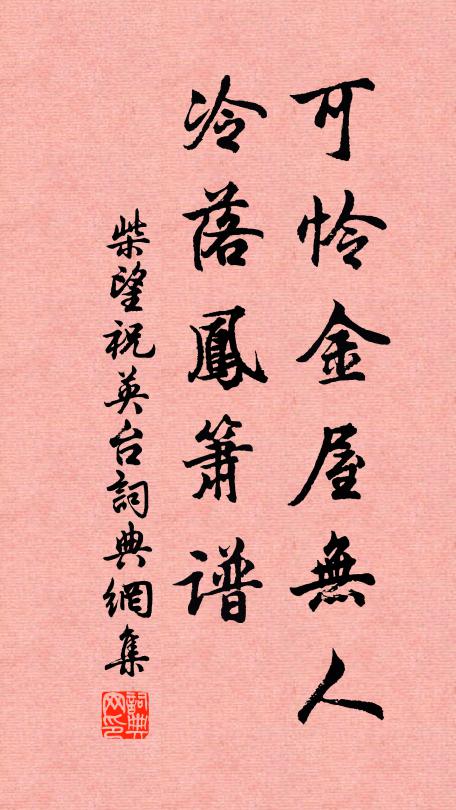 可怜金屋無人
冷落鳳簫谱
柴望祝英台詞典網集
詞典网印